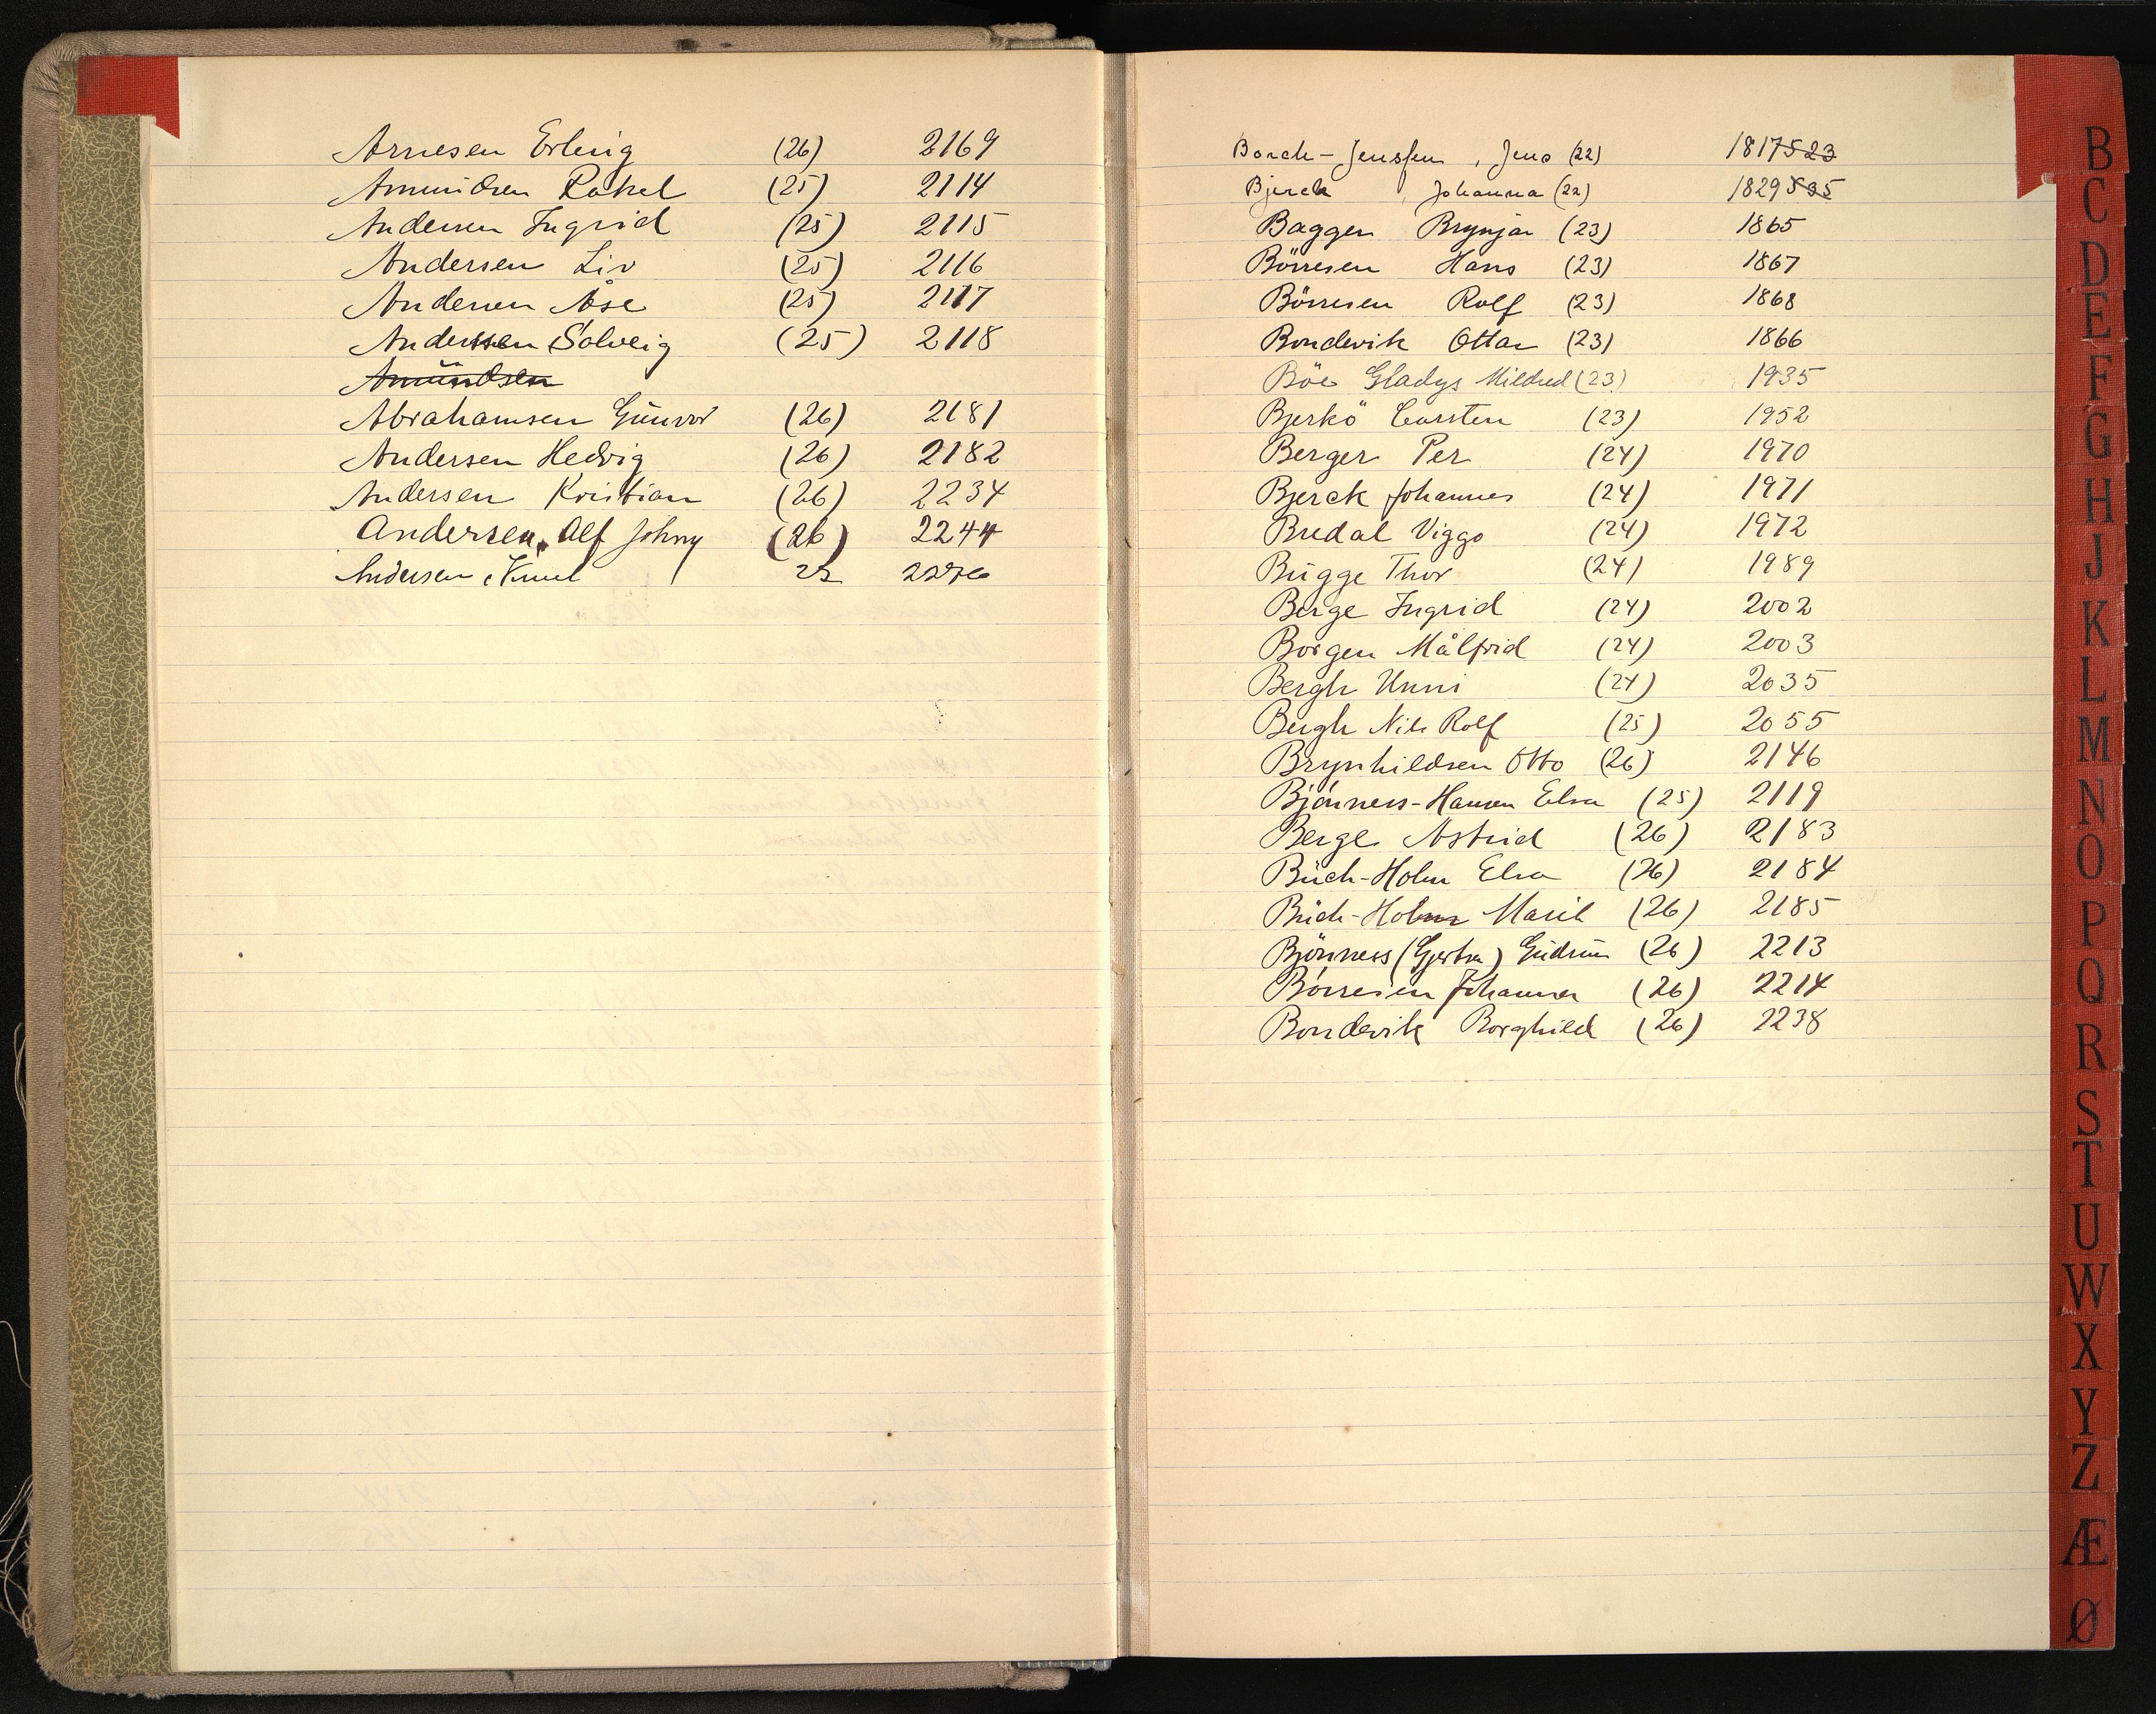 Arnesen Erling (26) 2169
Amundsen Rakel (25) 2114
Andersen Ingrid (25) 2115
Andersen Liv (25) 2116
Andersen Åse (25) 2117
Anderssen Solveig (25) 2118
Amundsen
Abrahamsen Gunvor (26) 2181
Andersen Hedvig (26) 2182
Andersen Kristian (26) 2234
Andersen, Alf Johny (26) 2244
Andersen, Knut 22
Borch-Jenssen, Jens (22) 1817 523
Bjerck Johanna (22) 1829 535
Baggen Brynjar (23) 1865
Börresen Hans (23) 1867
Börresen Rolf (23) 1868
Bondevik Ottar (23) 1866
Böe Gladys Mildred (23) 1935
Bjerkö Carsten (23) 1952
Berger Per (24) 1970
Bjerck Johannes (24) 1971
Bredal Viggo (24) 1972
Bugge Thor (24) 1989
Berge Ingrid (24) 2002
Borgen Målfrid (24) 2003
Bergh Unni (24) 2035
Bergh Nils Rolf (25) 2055
Brynhildsen Otto (26) 2146
Bjönness-Hansen Elsa (25) 2119
Berge Astrid (26) 2183
Buch-Holm Elsa (26) 2184
Buch-Holm Marit (26) 2185
Bjönness (Gjertsen) Gudrun (26) 2213
Börresen Johanna (26) 2214
Bondevik Borghild (26) 2238
B
C
D
E
F
G
H
J
K
L
M
N
O
P
Q
R
S
T
U
W
X
Y
Z
Æ
Ø